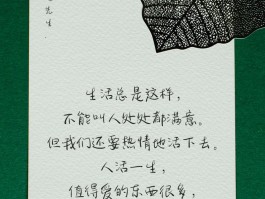 先生.
生活总是这样,
不能叫人处处都满意。
但我们还要热情地活下去。
人活一生,
值得爱的东西很多,